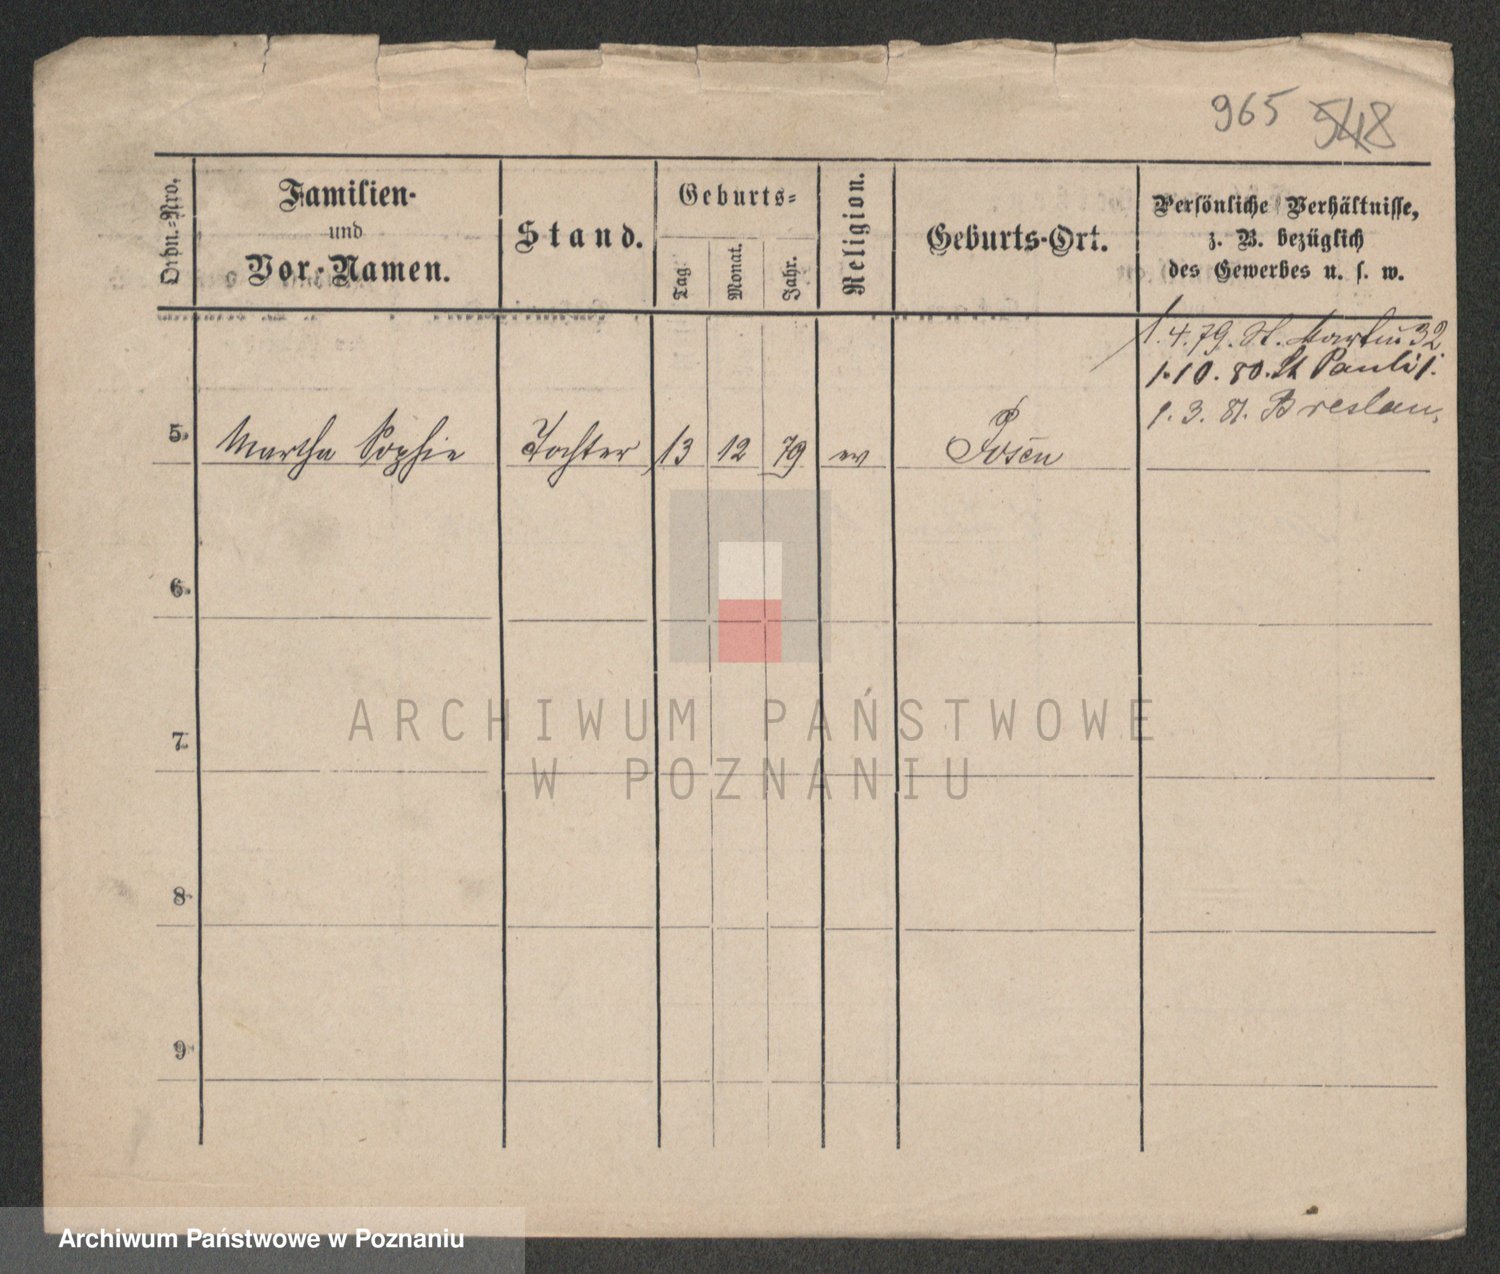 965 548
Ordn.-Nro.
Familien-
und
Vor-Namen.
Stand.
Geburts-
Tag.
Monat.
Jahr.
Religion.
Geburts-Ort.
Persönliche Verhältnisse,
z. B. bezüglich
des Gewerbes u. s. w.
1.4.79. St. Martin 32
1.10.80. St Pauli 1.
1.3.81. Breslau,
5. Martha Sophie Tochter 13 12 79 ev Posen
6.
7.
8.
9.
ARCHIWUM PAŃSTWOWE
W POZNANIU
Archiwum Państwowe w Poznaniu